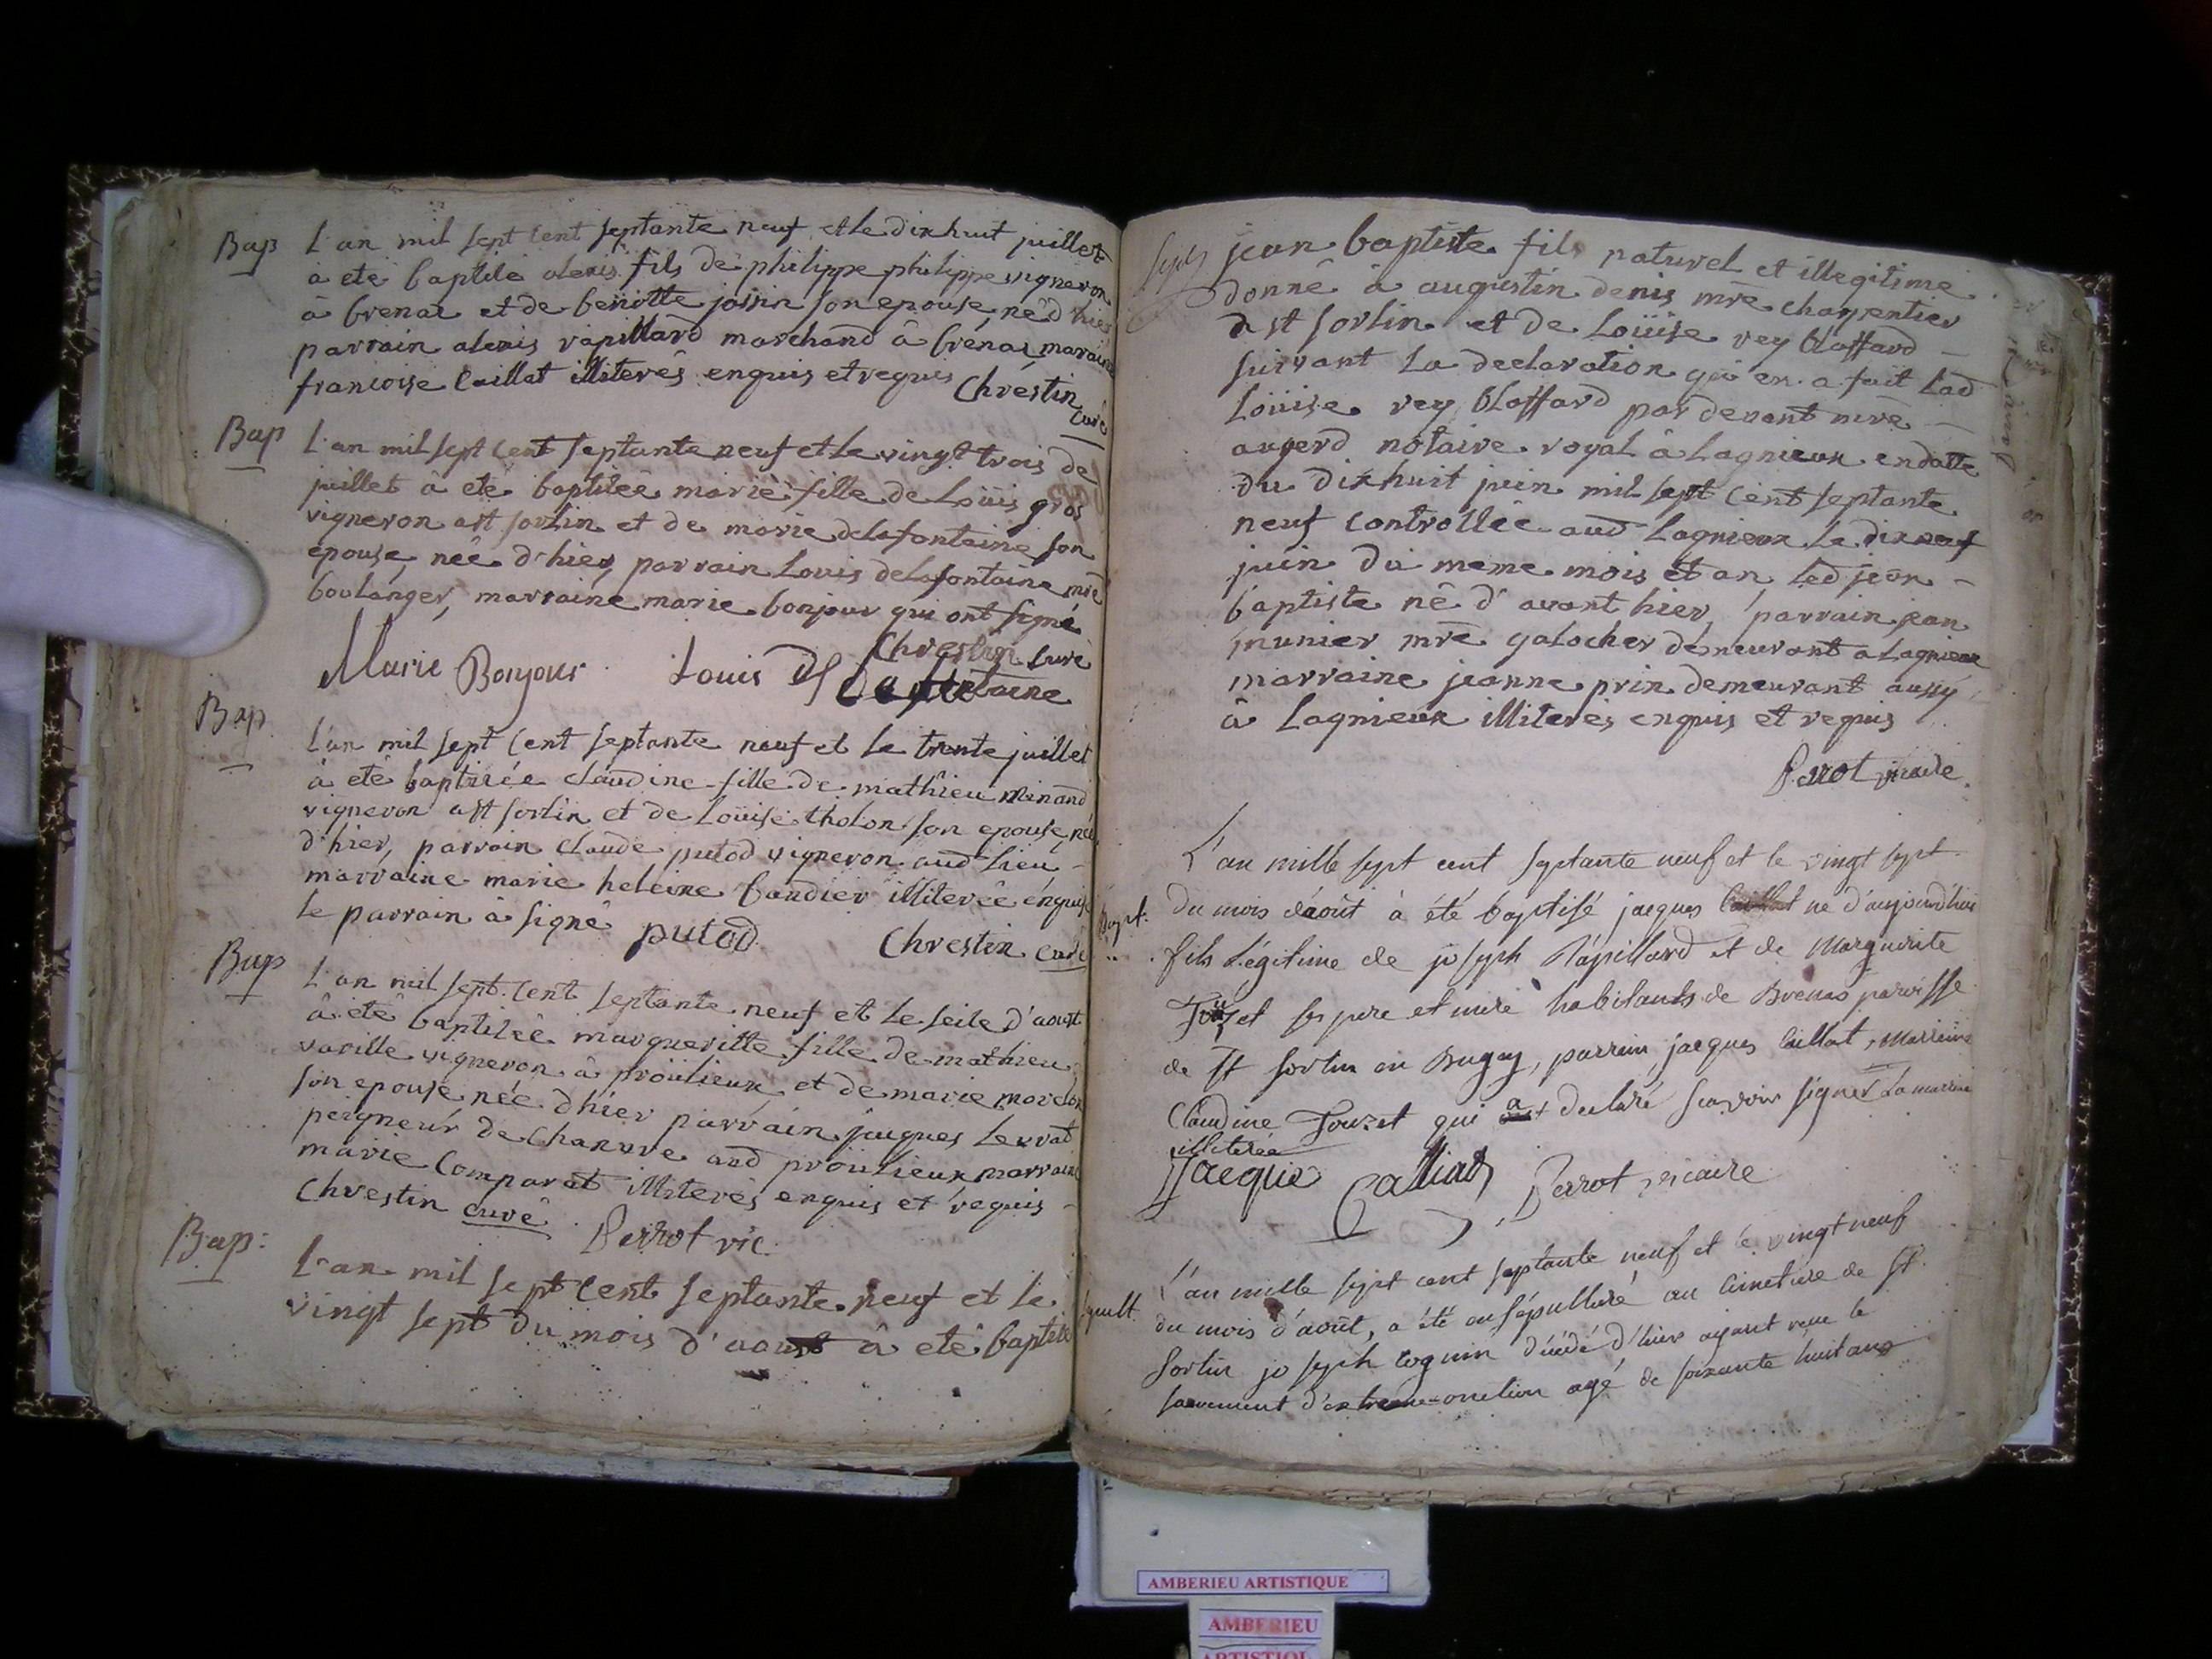 Bap
L'an mil sept cent septante neuf et le dixhuit juillet
à eté baptisé alexis fils de philippe philippe vigneron
à brenaz et de benoitte josnin son epouse né d'hier
parrain alexis rapillard marchand à brénaz maraine
francoise Caillat illiterés enquis et requis Chrestin
curé
Bap
L'an mil sept cent septante neuf et le vingt trois de
juillet à eté baptisée marie fille de Loüis gros
vigneron a st sorlin et de marie delafontaine son
epouse née d'hier, parrain Louis delafontaine mre
boulanger, marraine marie bonjour qui ont signé
Chrestin curé
Marie Bonjour Louis Delafontaine
Bap
L'an mil sept cent septante neuf et le trente juillet
à eté baptisée claudine fille de mathieu minand
vigneron a st sorlin et de Loüise tholon son epouse née
d'hier, parrain claude putod vigneron aud lieu
marraine marie heleine baudier illiterée enquise
le parrain à signé putod Chrestin curé
Bap
L'an mil sept cent septante neuf et le seise d'aoust
à eté baptisée margueritte fille de mathieu
varille vigneron à proülieux et de marie morelon
son epouse née d'hier parrain jaques Lerrat
peigneur de chanvre aud proülieux marraine
marie Comparat illiterés enquis et requis
Chrestin curé Perrot vic.
Bap:
L'an mil sept cent septante neuf et le
vingt sept du mois d'aoust à eté baptisé
jean baptiste fils naturel et illegitime
donné à augustin denis mre charpentier
à st sorlin et de Loüise rey bloffard
suivant la declaration qui en a fait lad
Loüise rey bloffard par devant mre
augerd notaire royal à Lagnieux en datte
du dixhuit juin mil sept cent septante
neuf controllée aud Lagnieux le dixneuf
juin du meme mois et an led jean
baptiste né d'avant hier, parrain jean
munier mre galocher demeurant a Lagnieux
marraine jeanne prin demeurant aussy
à Lagnieux illiterés enquis et requis
Perrot vicaire
L'an mille sept cent septante neuf et le vingt sept
Bapt.
du mois d'août à été baptisé jacques Caillat né d'aujourd'hui
fils légitime de joseph Rapillard et de Marguerite
Touzet ses pere et mere habitants de Brenas paroisse
de St sorlin en Bugey, parrain jacques Caillat, Marreine
Claudine Touzet qui a declaré scavoir signer La marrine
illiterée
Jacque Calliat Perrot vicaire
L'an mille sept cent septante neuf et le vingt neuf
Sepult.
du mois d'août, a été ensépulturé au cimetiere de St
Sorlin joseph coquin décédé d'hier ayant recu le
sacrement d'extreme-onction agé de soixante huit ans
AMBERIEU ARTISTIQUE
AMBERIEU
ARTISTIQU